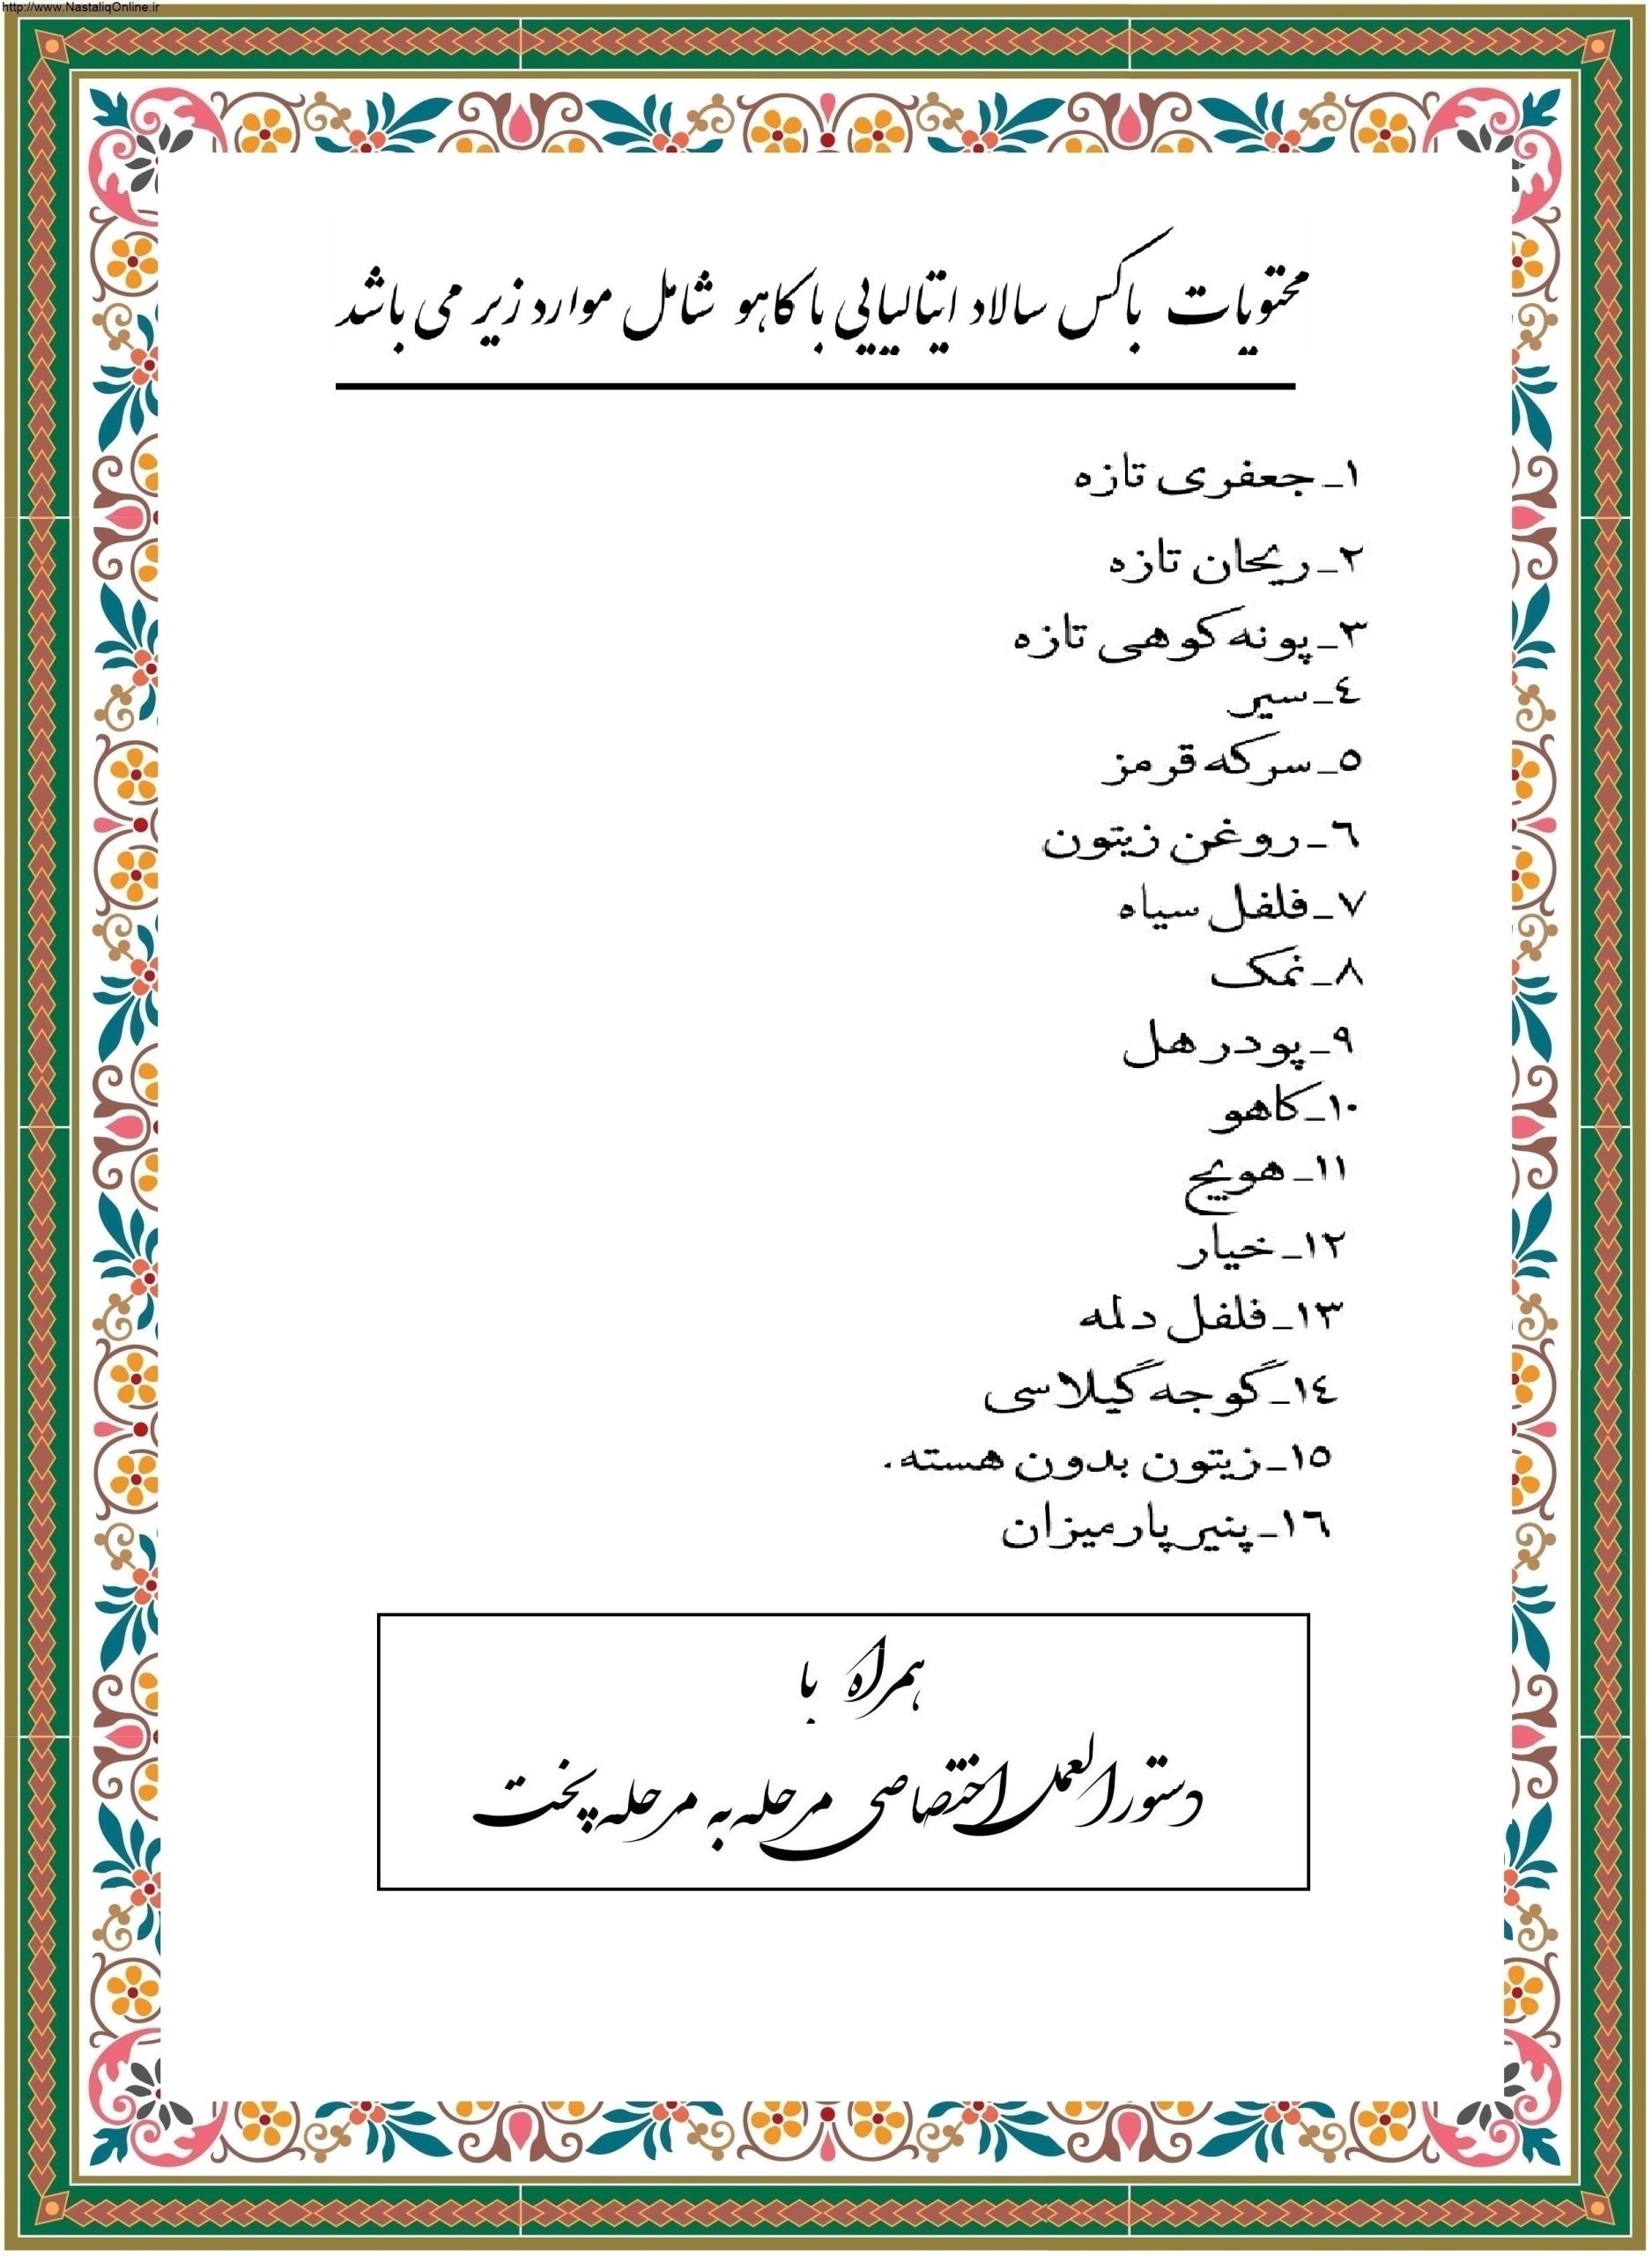 http://www.NastaliqOnline.ir
محتویات باکس سالاد ایتالیایی با کاهو شامل موارد زیر می باشد
١ـ جعفری تازه
٢ـ ریحان تازه
٣ـ پونه کوهی تازه
٤ـ سیر
٥ـ سرکه قرمز
٦ـ روغن زیتون
٧ـ فلفل سیاه
٨ـ نمک
٩ـ پودر هل
١٠ـ کاهو
١١ـ هویج
١٢ـ خیار
١٣ـ فلفل دلمه
١٤ـ گوجه گیلاسی
١٥ـ زیتون بدون هسته.
١٦ـ پنیر پارمیزان
همراه با
دستورالعمل اختصاصی مرحله به مرحله پخت